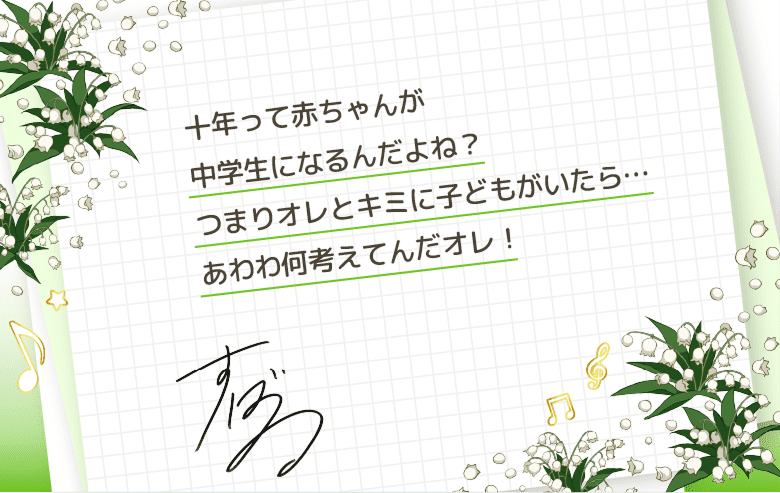 十年って赤ちゃんが
中学生になるんだよね？
つまりオレとキミに子どもがいたら…
あわわ何考えてんだオレ！
すばる